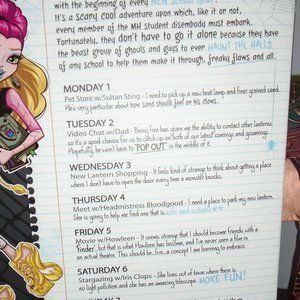 with the beginning of every NEW SCHOOL YEAR!
It's a scary cool adventure upon which, like it or not,
every member of the MH student disembody must embark.
Fortunately, they don't have to go it alone because they have
the beast group of ghouls and guys to ever HAUNT THE HALLS
of any school to help them make it through, freaky flaws and all.
MONDAY 1
Pet Store w/Sultan Sting - I need to pick up a new heat lamp and finer grained sand.
He's very particular about how sand should feel on his claws.
TUESDAY 2
Video Chat w/Dad - Being free has given me the ability to contact other lanterns
so it's a good chance for us to catch up on both of our latest comings and goings.
Hopefully, he won't have to "POP OUT" in the middle of it.
WEDNESDAY 3
New Lantern Shopping - It feels kind of strange to think about getting a place
where I don't have to open the door every time a monster knocks.
THURSDAY 4
Meet w/Headmistress Bloodgood - I need a place to park my new lantern.
She is going to help me find one that is safe and suitable
FRIDAY 5
Movie w/Howleen - It seems strange that I should become friends with a
"finder", but that is what Howleen has become, and I've never seen a film in
an actual theatre. This should be...fun...a concept I am learning to embrace.
SATURDAY 6
Stargazing w/Iris Clops - She lives out of town where there is
no light pollution and she has an amazing telescope. MORE FUN!